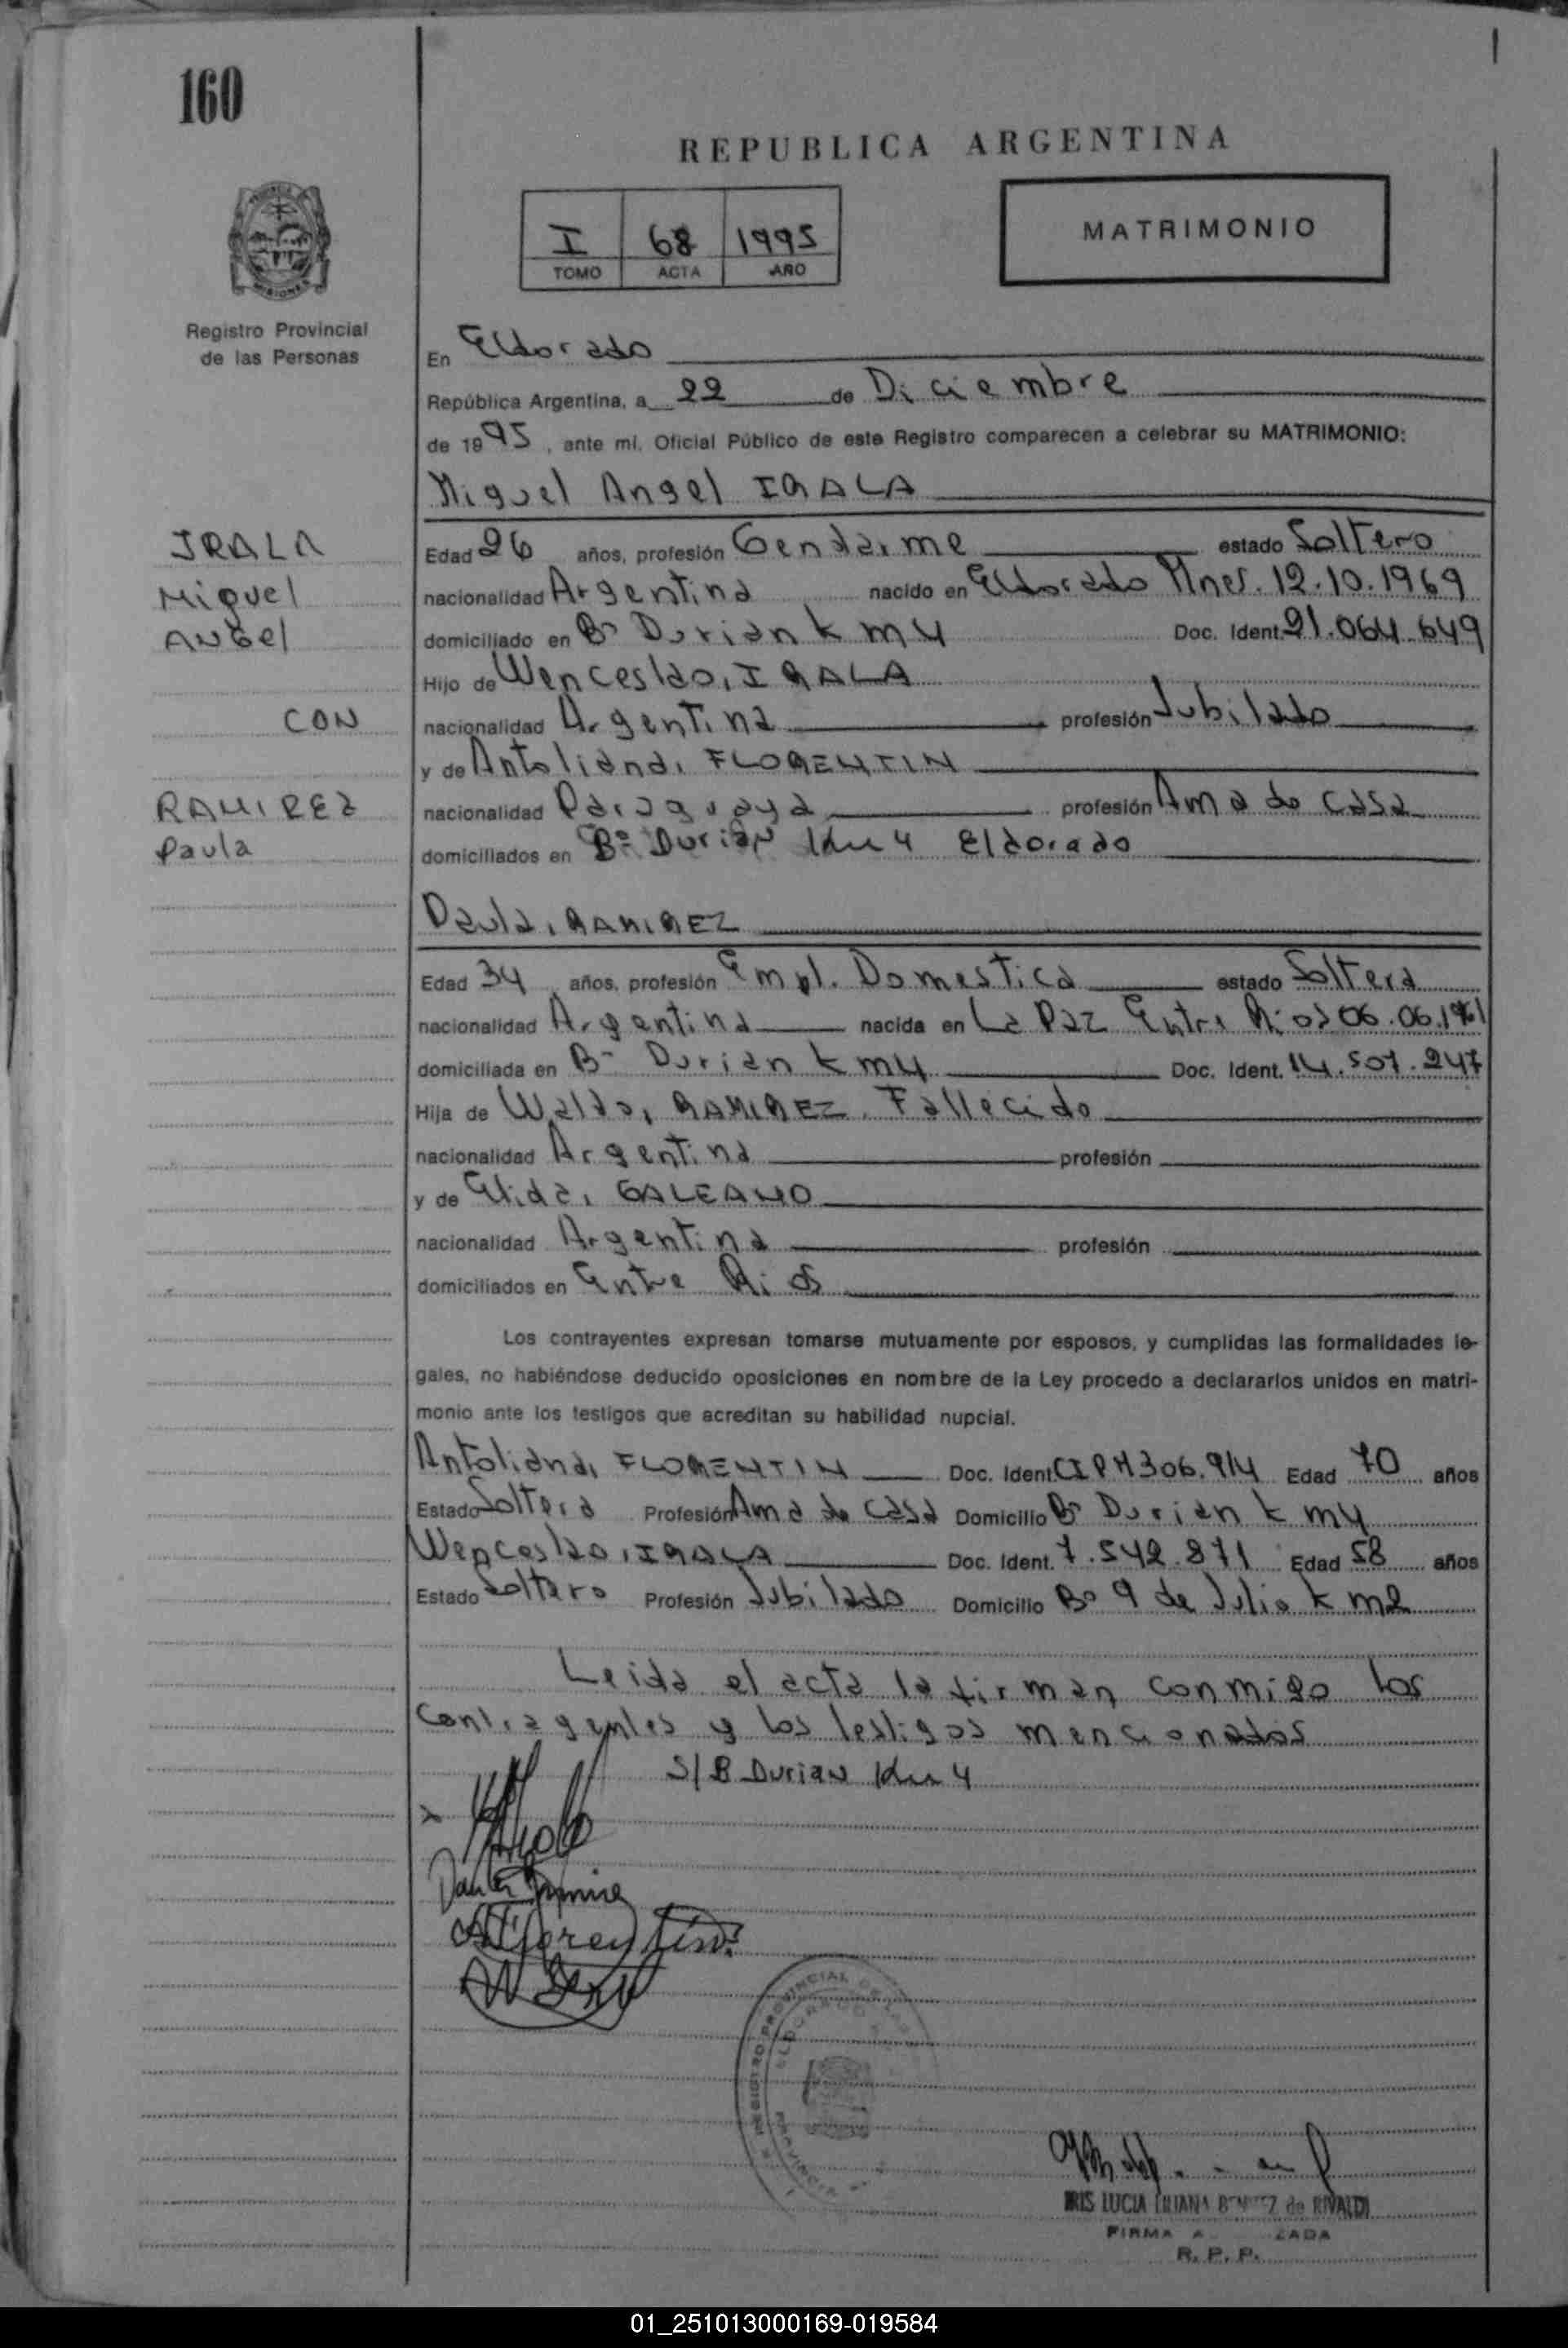 160
REPUBLICA ARGENTINA
I 68 1995
TOMO ACTA AÑO
MATRIMONIO
Registro Provincial
de las Personas
En Eldorado
República Argentina, a 22 de Diciembre
de 1995, ante mí, Oficial Público de este Registro comparecen a celebrar su MATRIMONIO:
Miguel Angel IRALA
IRALA
Miguel
Angel
CON
RAMIREZ
Paula
Edad 26 años, profesión Gendarme estado Soltero
nacionalidad Argentina nacido en Eldorado Mnes. 12.10.1969
domiciliado en Bº Durian km 4 Doc. Ident. 21.064.649
Hijo de Wenceslao, IRALA
nacionalidad Argentina profesión Jubilado
y de Antoliana, FLORENTIN
nacionalidad Paraguaya profesión Ama de casa
domiciliados en Bº Durian Km 4 Eldorado
Paula, RAMIREZ
Edad 34 años, profesión Empl. Domestica estado Soltera
nacionalidad Argentina nacida en La Paz Entre Rios 06.06.1961
domiciliada en Bº Durian km 4 Doc. Ident. 14.507.247
Hija de Waldo, RAMIREZ. Fallecido
nacionalidad Argentina profesión
y de Elida, GALEANO
nacionalidad Argentina profesión
domiciliados en Entre Rios
Los contrayentes expresan tomarse mutuamente por esposos, y cumplidas las formalidades le-
gales, no habiéndose deducido oposiciones en nombre de la Ley procedo a declararlos unidos en matri-
monio ante los testigos que acreditan su habilidad nupcial.
Antoliana, FLORENTIN Doc. Ident. CIPM 306.914 Edad 70 años
Estado Soltera Profesión Ama de casa Domicilio Bº Durian km 4
Wenceslao, IRALA Doc. Ident. 7.542.871 Edad 58 años
Estado Soltero Profesión Jubilado Domicilio Bº 9 de Julio km 2
Leida el acta la firman conmigo los
contrayentes y los testigos mencionados
S/B Durian Km 4
REGISTRO PROVINCIAL DE LAS
ELDORADO
PROVINCIA
IRIS LUCIA LILIANA BENITEZ de RIVALDI
FIRMA
R. P. P.
01_251013000169-019584